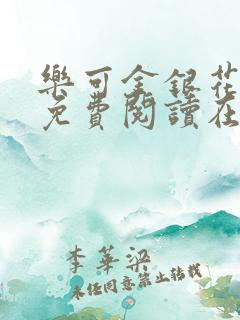 樂可金銀花
免費閱讀在
李華梁
未經同意禁止轉載